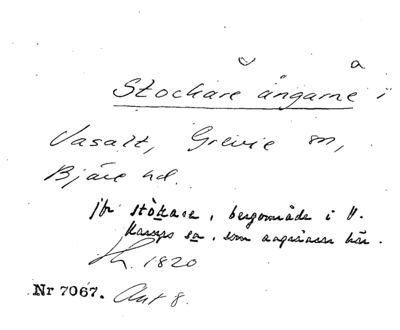 Stockare ängarne i
Vasalt, Grevie sn,
Bjäre hd.
jfr stòkare, bergområde i V.
Karups sn, som angränsar här.
Sk. 1820
Nr 7067. Ant 8.